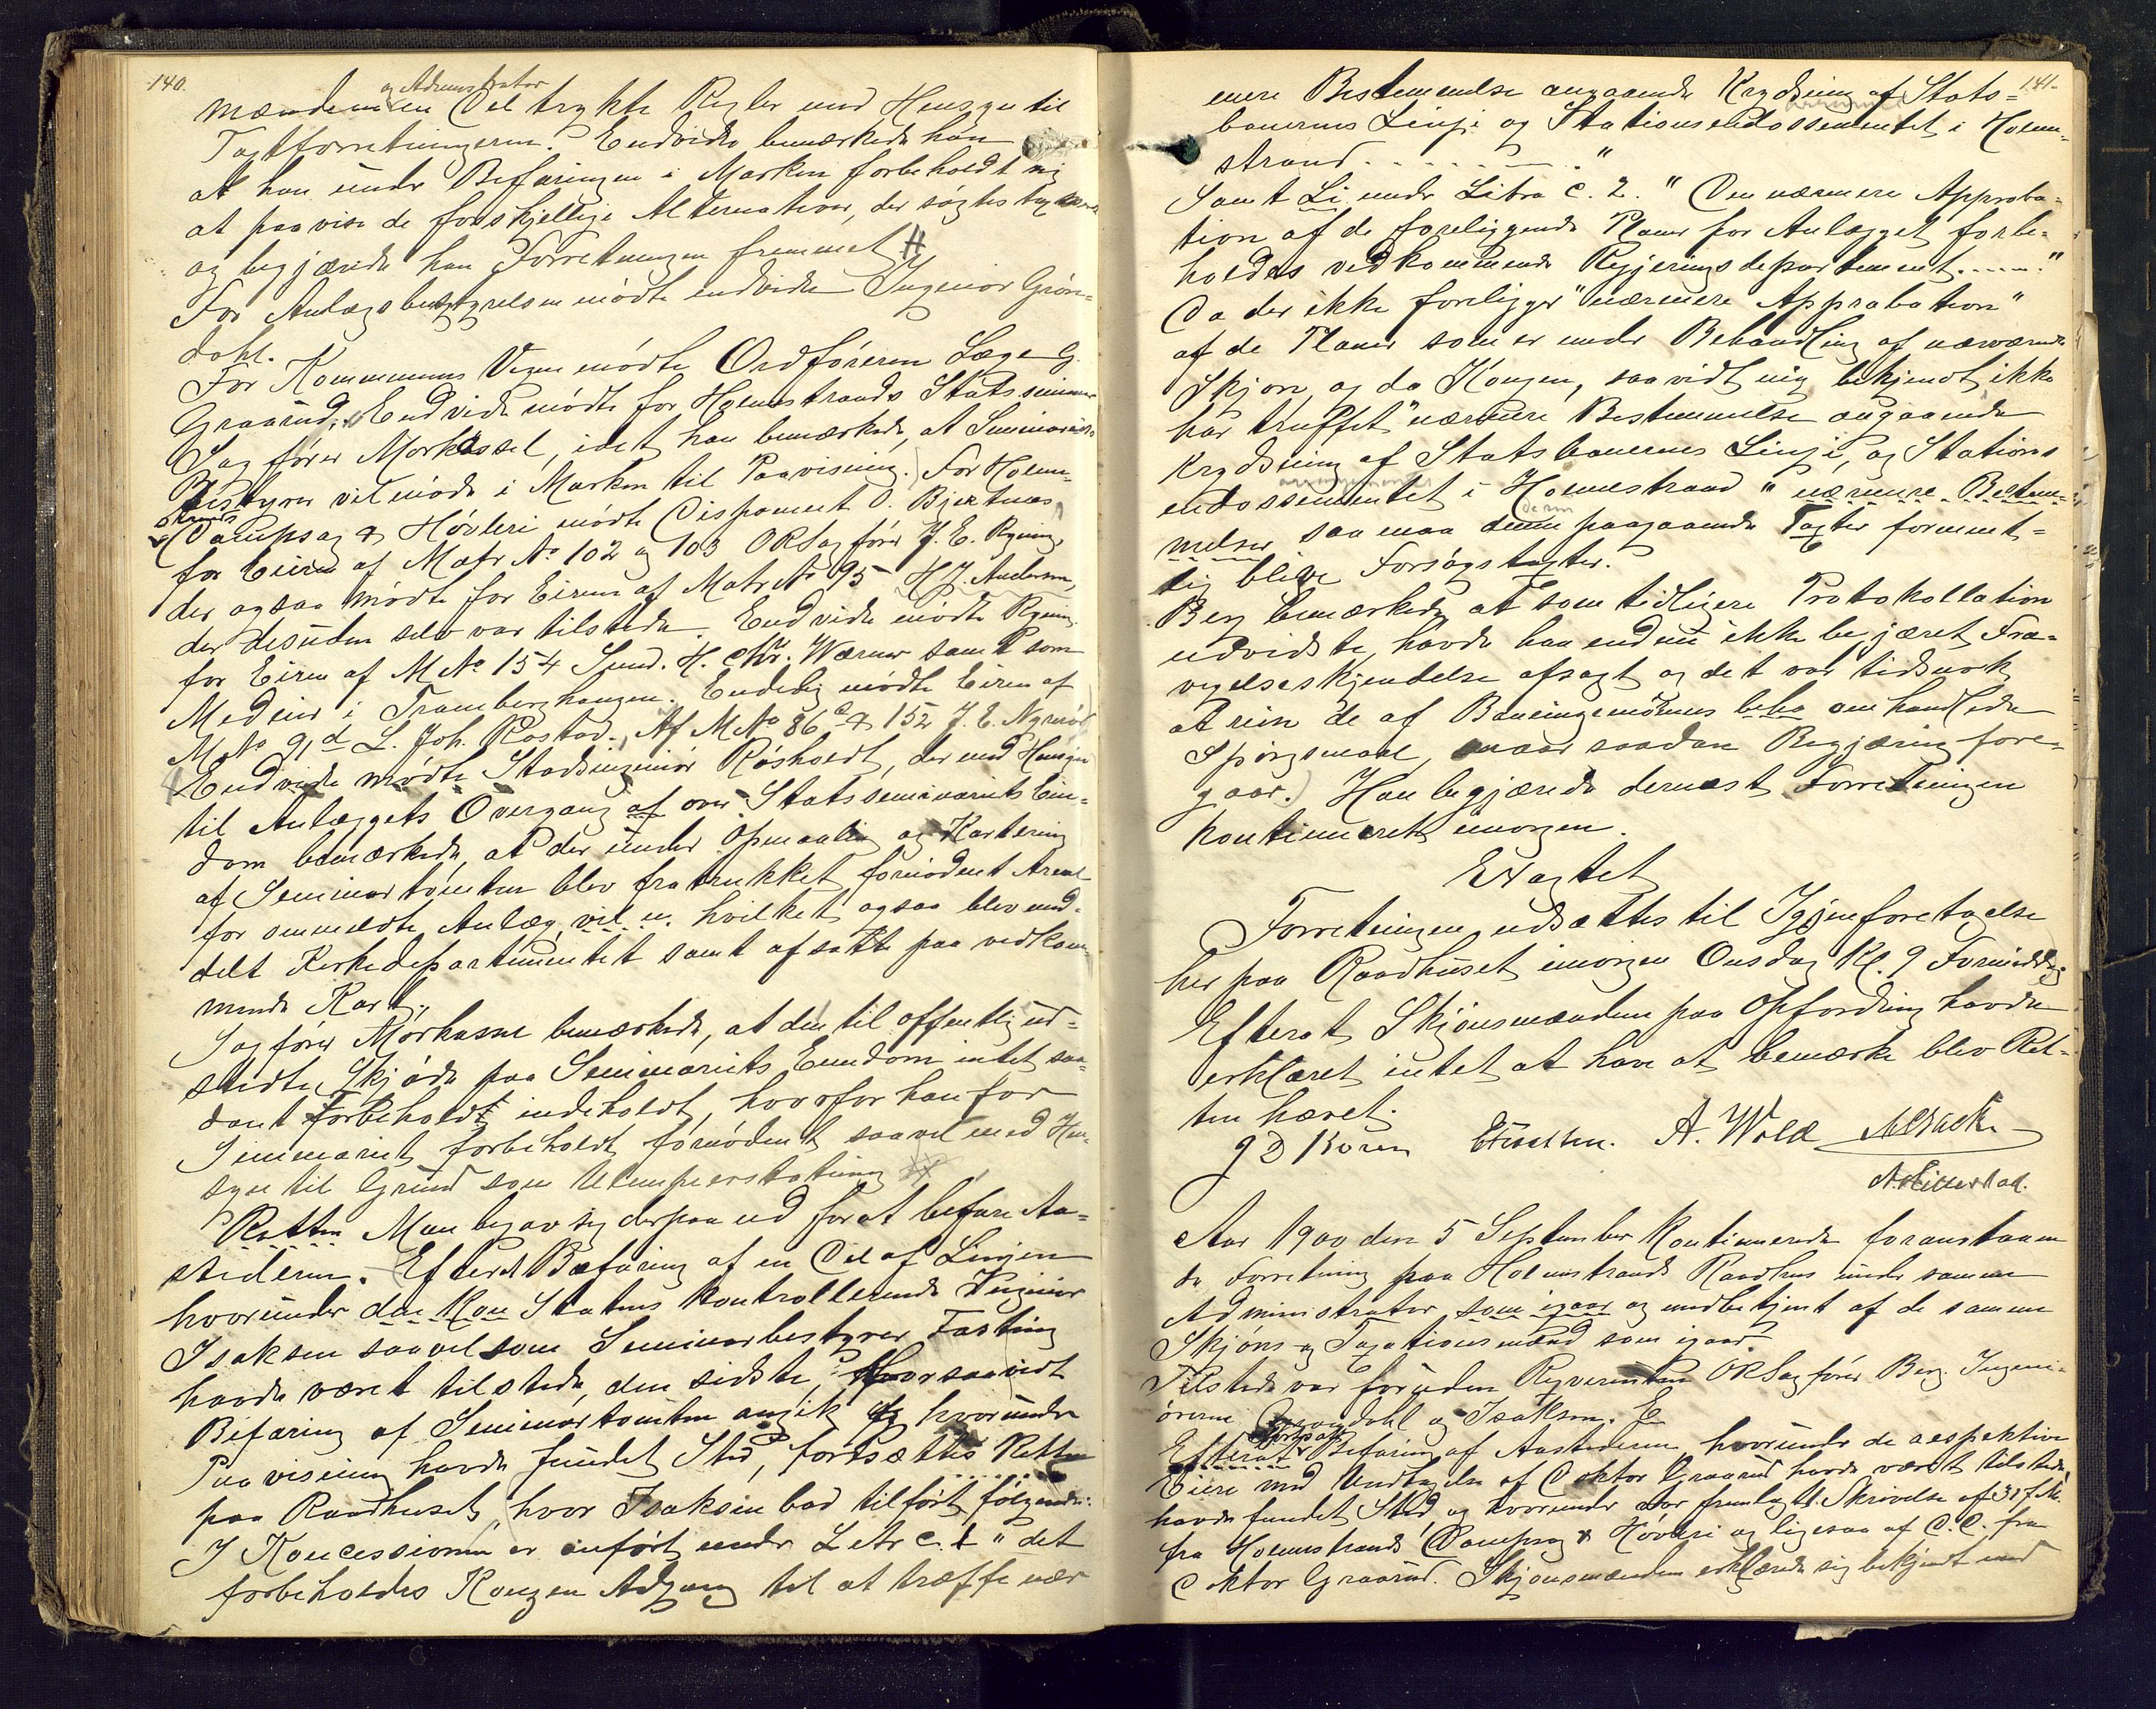 140.
og Administrator
mændenen Del trykte Regler med Hensyn til
Taxtforretningerne. Endvidre bemærkede han
at han under Befaringen i Marken forbeholdt sig
at paavise de forskjellige Alternativer, der søgtes
og begjærede han Forretningen fremmet #
For Anlægsbestyrelsen mødte endvidre Ingeniør Grøn-
dahl.
For Kommunens Vegne mødte Ordføreren Læge G.
Graarud, Endvidre mødte for Holmestrands Statsseminar
Sagfører Morkassel, idet han bemærkede, at Seminariets
Bestyrer vil møde i Marken til Paavisning. For Holme-
strands
Dampsag & Høvleri mødte Disponent O. Bjertnæs
for Eieren af Matr No 102 og 103 ORSagfører J. E. Ryning,
der ogsaa mødte for Eieren af Matr No 95 H. J. Andersen,
der desuden selv var tilstede. Endvidre mødte Ryning
for Eieren af M No 154 Smed. H. Chr. Werner samt som
Medeier i Tramberghaugen. Endelig mødte Eieren af
M No 91 d L. Joh. Rostad. Af M No 86 a & 152 J. E. Nyerød
Endvidre mødte Stadsingeniør Røsholdt, der med Hensyn
til Anlæggets Overgang af over Statsseminariets Eien-
dom bemærkede, at der under Opmaaling og Kartering
af Seminartomten blev fratrukket fornødent Areal
for omméldte Anlæg, vil n. hvilket ogsaa blev med-
delt Kirkedepartementet samt afsatte paa vedkom-
mende Kart.
Sagfører Morkassel bemærkede, at den til offentlig ud-
stedte Skjøde paa Seminariets Eiendom intet saa-
dant Forbehold indeholdt, hvorfor han for
Seminariet forbeholdt fornødent saavel med Hen-
syn til Grund som Ulempeerstatning
Retten Man begav sig derpaa ud for at befare Aa-
stederne. Efterat Befaring af en Del af Linjen
hvorunder den Kon Statens kontrollerende Ingeniør
Isaksen saavel som Seminarbestyrer Fasting
havde været tilstede, den sidste, forsaavidt
Befaring af Seminartomten angik og hvorunder
Paavisning havde fundet Sted, fortsættes Retten
paa Raadhuset, hvor Isaksen bad tilført følgende:
I Koncessionen er anført under Litr C. 1 "det
forbeholdes Kongen Adgang til at træffe nær
141.
mere Bestemmelse angaaende Krydsning af Stats-
banernes Linje og Stationsendossementet i Holme-
strand . . . . . . . "
Samt Li under Litra C. 2. "Den nærmere Approba-
tion af de foreliggende Planer for Anlægget forbe-
holdes vedkommende Regjeringsdepartement....."
Da der ikke foreligger "nærmere Approbation"
af de Planer som er under Behandling af nærværende
Skjøn, og da Kongen, saavidt mig bekjendt, ikke
har truffet "nærmere Bestemmelse angaaende
Krydsning af Statsbanernes Linje, og Stations
endossementet i Holmestrand " nærmere Bestem-
melser saa maa denne paagaaende Taxter forment-
lig blive Forsøgstaxter.
Berg bemærkede at som tidligere Protokollation
udviste, havde han endnu ikke begjæret Fra-
vigelseskjendelse afsagt og det var tidsnok
at reise de af Baneingeniørens beha omhandlede
Spørgsmaal, naar saadan Begjæring fore-
gaar. Han begjærede dernæst Forretningen
kontinueret imorgen.
Eragtet
Forretningen udsættes til Igjenforetagelse
her paa Raadhuset imorgen Onsdag Kl. 9 Formiddag
Efterat Skjønsmændene paa Opfordring havde
erklæret intet at have at bemærke blev Ret-
ten hævet.
J D Koren A. Wold
Aar 1900 den 5 September kontinuerede foranstaaen
de Forretning paa Holmestrands Raadhus under samme
Administrator som igaar og medbetjent af de samme
Skjøns og Taxationsmænd som igaar.
Tilstede var foruden Reqverenten ORSagfører Berg. Ingeni-
ørerne Grøndahl og Isaksen. E
fortsat
Efterat Befaring af Aastederne, hvorunder de respektive
Eiere med Undtagelse af Doktor Graarud havde været tilstede
havde fundet Sted, og hvorunder var fremlagt Skrivelse af 31 f. M.
fra Holmestrands Dampsag & Høvleri og ligesaa af D. D. fra
Doktor Graarud. Skjønsmændene erklærede sig bekjendt med